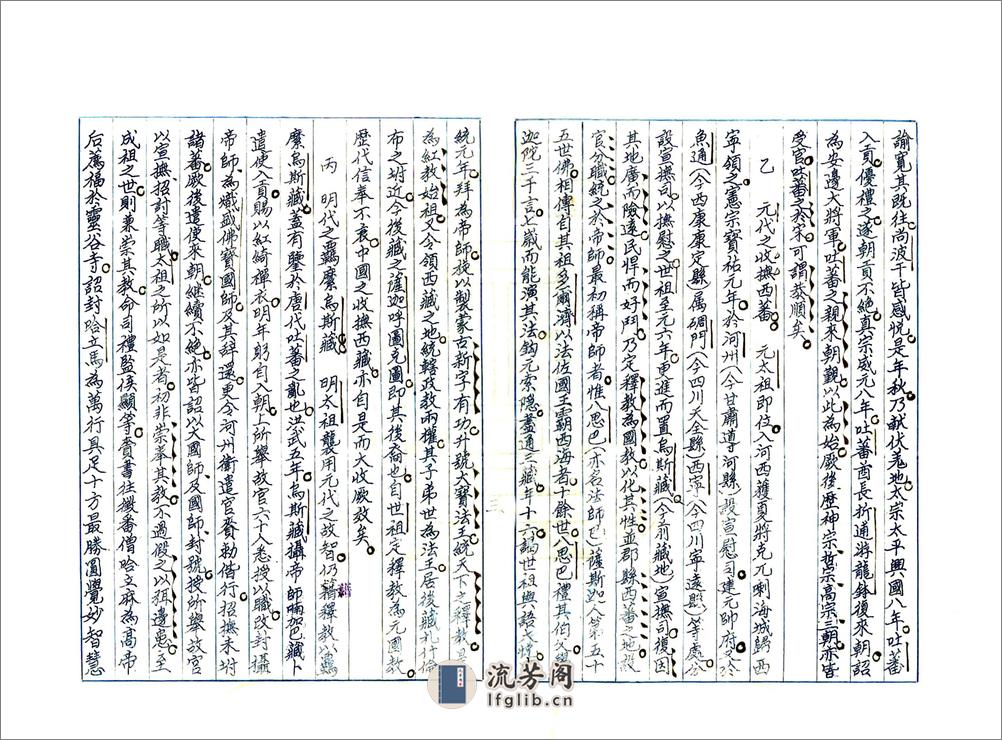 諭寬其既往尚波于皆感悅是年秋乃獻伏羌地太宗太平興國八年吐蕃
入貢優禮之遂朝貢不絕真宗咸元八年吐蕃酋長折逋將龍鉢復來朝詔
為安邊大將軍吐蕃之親來朝觀以此為始厥後歷神宗哲宗高宗三朝亦皆
受官吐蕃之於宋可謂恭順矣
乙 元代之收撫西蕃 元太祖即位入河西獲夏將克元喇海城歸西
寧領之憲宗寶祐元年於河州(今甘肅導河縣)設宣慰司建元帥府又於
魚通(今西康康定縣)属碉門(今四川天全縣)西寧(今四川寧遠縣)等處分
設宣撫司以撫慰之世祖至元六年更進而置烏斯藏(今前藏地)宣撫司後因
其地廣而險遠民悍而好鬥乃定釋教為國教以化其性並郡縣西蕃之地設
官分職統之於帝師最初稱帝師者惟八思巴(亦名法師巴)薩斯迦人第五十
五世佛相傳自其祖多爾濟以法佐國王霸西海者十餘世八思巴禮其伯父
迦院三千言七歲而能演其法鈎元索隱盡通三藏年十六謁世祖與語大悅
統元年拜為帝師旋以製蒙古新字有功升號大寶法王統天下之釋教是
為紅教始祖又令領西藏之地統轄政教兩權其子弟世為法王居後藏札什倫
布之坿近今後藏之薩迦呼圖克圖即其後裔也自世祖定釋教為元國教
歷代信奉不衰中國之收撫西藏亦自是而大收厥效矣
丙 明代之羈縻烏斯藏 明太祖襲用元代之故智仍藉釋教以羈
縻烏斯藏蓋有鑒於唐代吐蕃之亂也洪武五年烏斯藏攝帝師喃加巴藏卜
遣使入貢賜以紅綺禪衣明年躬自入朝上所舉故官六十人悉授以職改封攝
帝師為熾盛佛寶國師及其辭還更令河州衛遣官賫勅偕行招撫未坿
諸蕃厥後遣使來朝繼續不絕亦皆詔以大國師及國師封號授所舉故官
以宣撫招討等職太祖之所以如是者初非崇奉其教不過假之以弭邊患至
成祖之世則兼崇其教命司禮監侯顯等賫書往徵番僧哈立麻為高帝
后薦福於靈谷寺詔封哈立馬為萬行具足十方最勝圓覺妙智慧
流芳阁
lfglib.cn